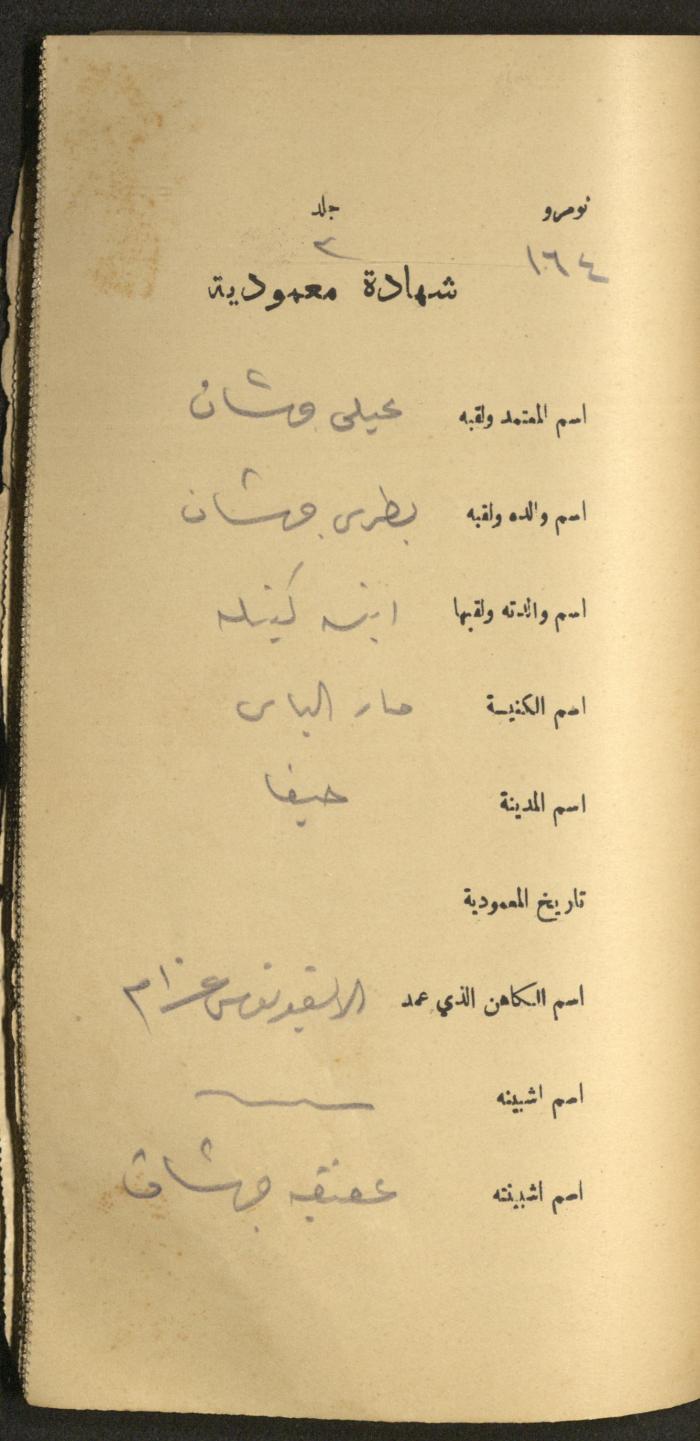 نومرو جلد
١٦٤ ٣
شهادة معمودية
اسم المعتمد ولقبه جهشان
اسم والده ولقبه بطرس جهشان
اسم والدته ولقبها
اسم الكنيسة مار الياس
اسم المدينة حيفا
تاريخ المعمودية
اسم الكاهن الذي عمد عزام
اسم اشبينه
اسم اشبينته عفيفه جهشان